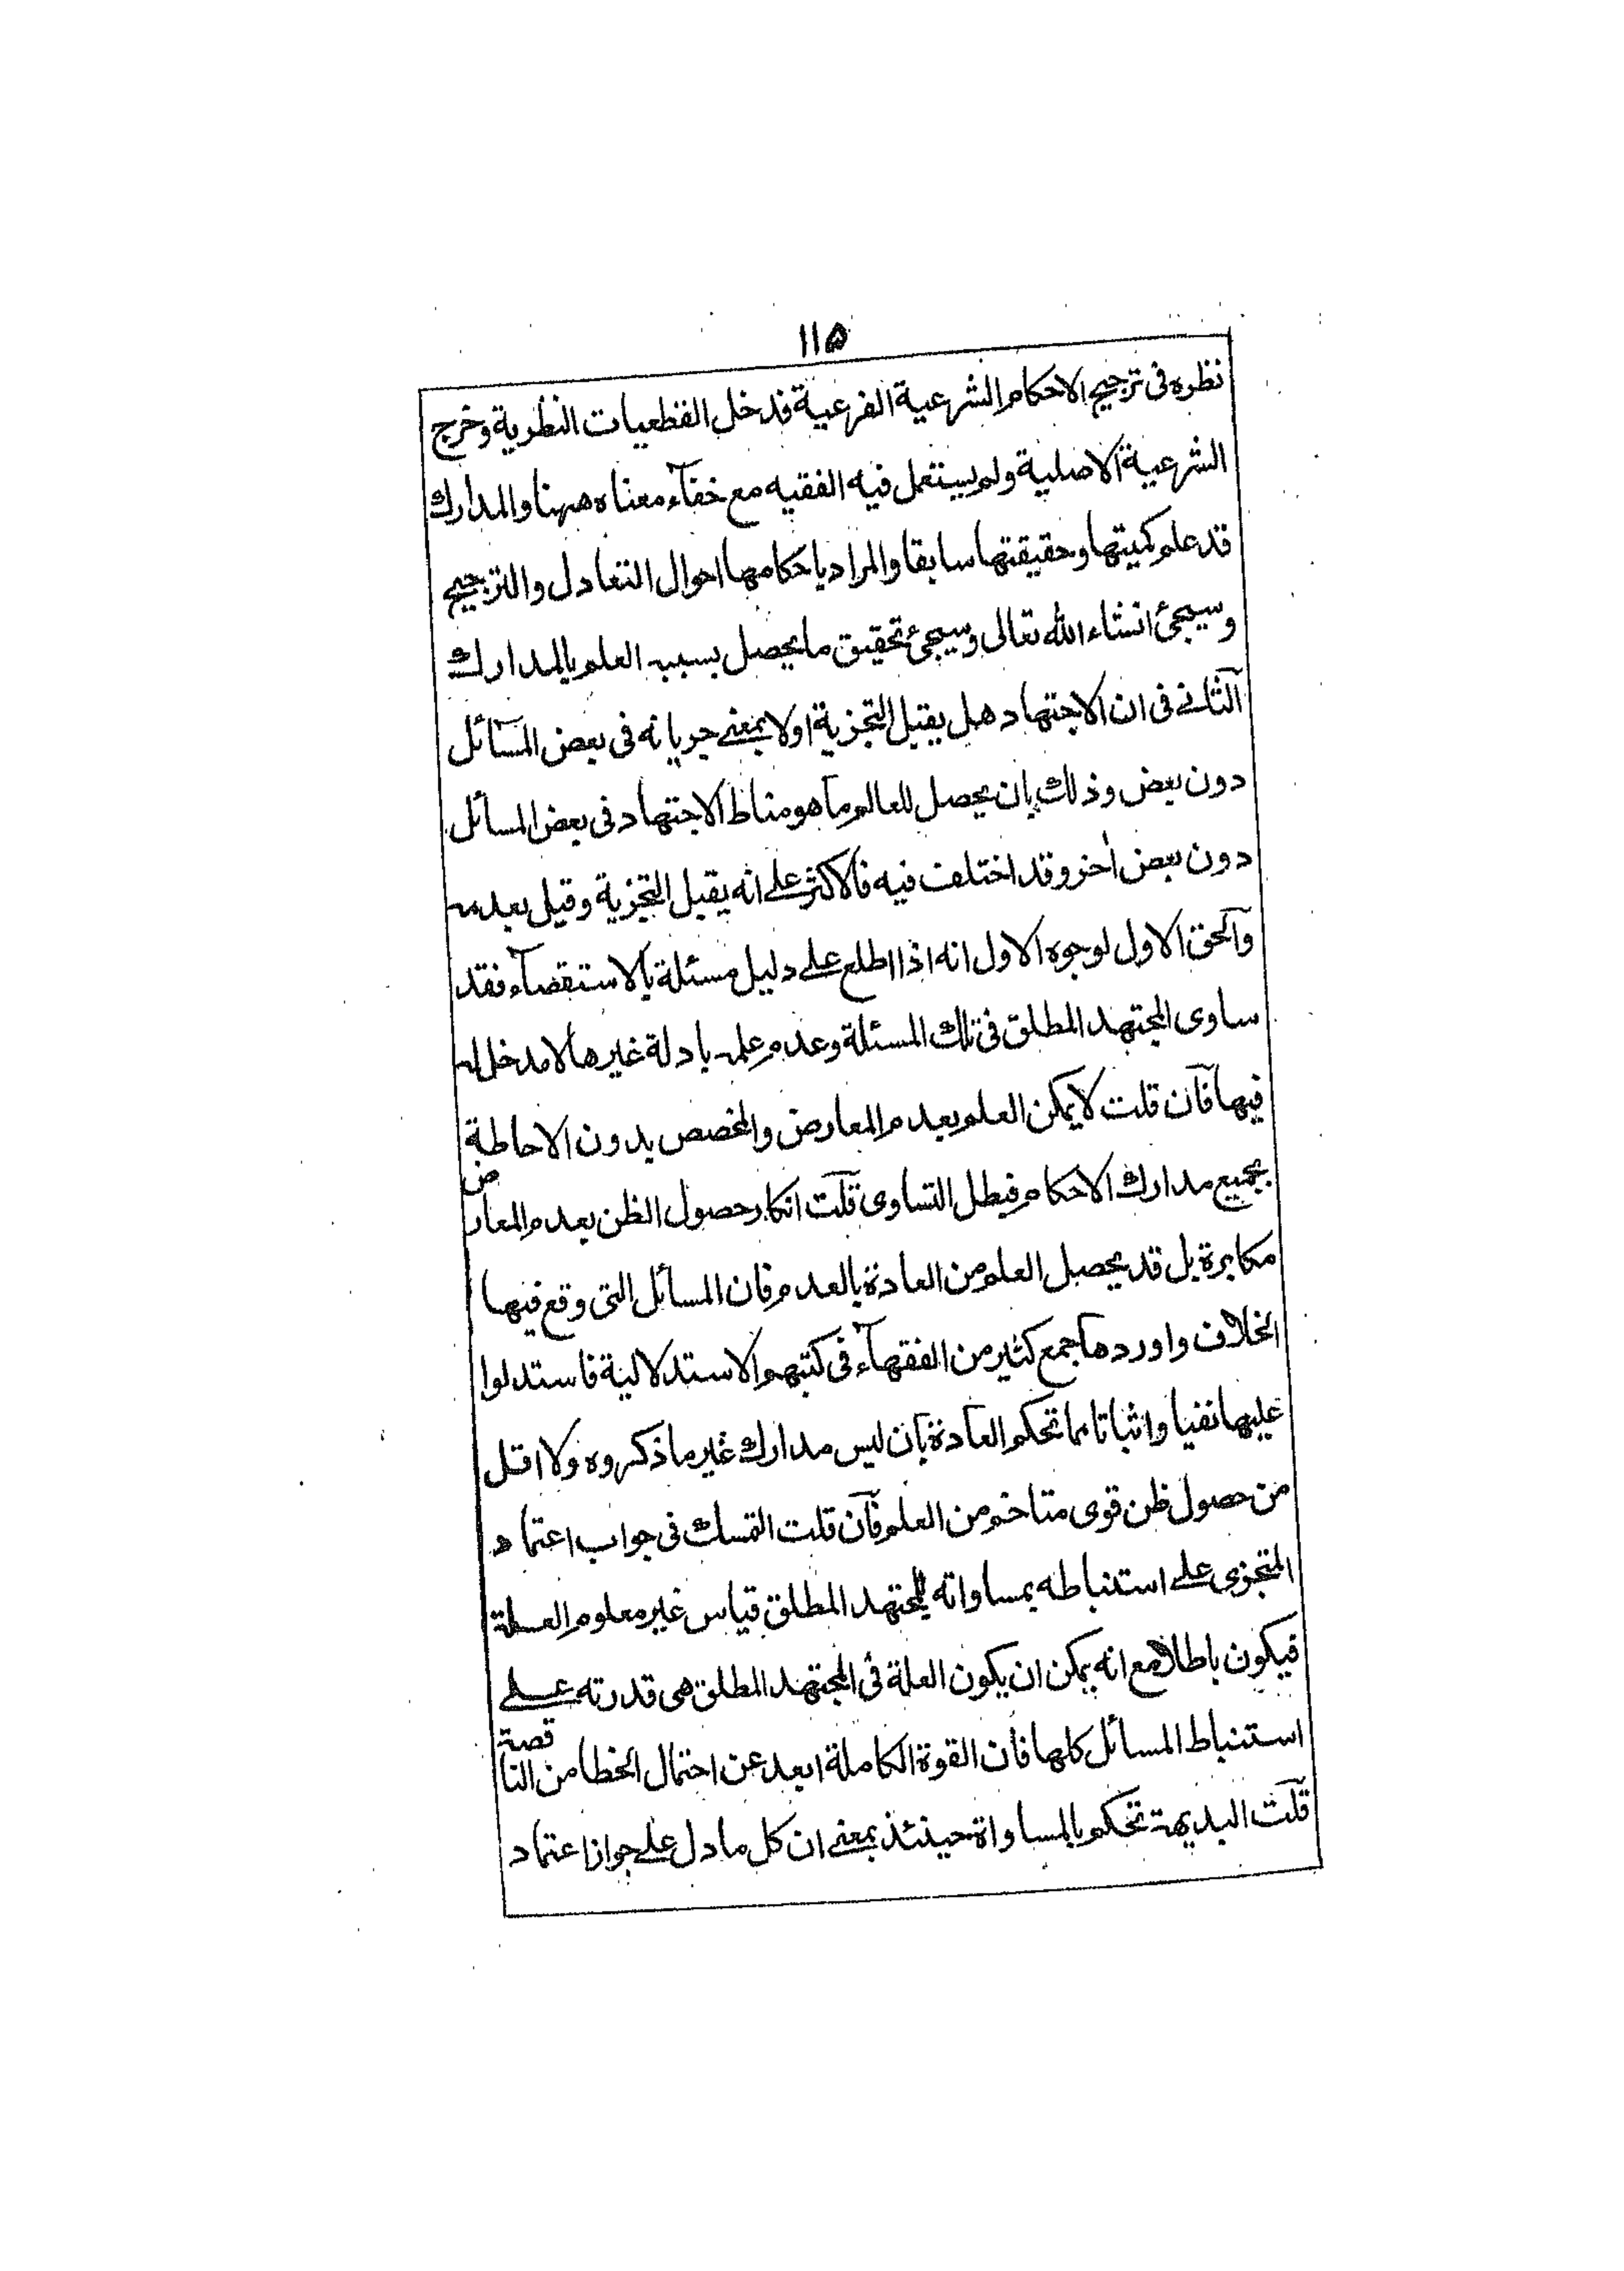 ١١٥
نظره فى ترجيح الاحكام الشرعية الفرعية فدخل القطعيات النظرية وخرج
الشرعية الاصلية ولم يستعمل فيه الفقيه مع خفآء معناه ههنا والمدارك
قد علم كميتها وحقيقتها سابقا والمراد باحكامها احوال التعادل والترجيح
وسيجئ انشاء الله تعالى وسيجئ تحقيق ما يحصل بسببه العلم بالمدارك
الثانے فى ان الاجتهاد هل يقبل التجزية اولا بمعنے جريانه فى بعض المسآئل
دون بعض وذلك بان يحصل للعالم ما هو مناط الاجتهاد فى بعض المسائل
دون بعض اخر وقد اختلف فيه فالاكثر علے انه يقبل التجزية وقيل بعدمه
والحق الاول لوجوه الاول انه اذا اطلع علے دليل مسئلة بالاستقصآء فقد
ساوى المجتهد المطلق فى تلك المسئلة وعدم علمه بادلة غيرها لا مدخل له
فيها فان قلت لا يمكن العلم بعدم المعارض والمخصص بدون الاحاطة
بجميع مدارك الاحكام فبطل التساوى قلت انكار حصول الظن بعدم المعارض
مكابرة بل قد يحصل العلم من العادة بالعدم فان المسائل التى وقع فيها
الخلاف واوردها جمع كثير من الفقهآء فى كتبهم الاستدلالية فاستدلوا
عليها نفيا واثباتا مما تحكم العادة بان ليس مدارك غير ما ذكروه ولا اقل
من حصول ظن قوى متاخم من العلم فان قلت التمسك فى جواب اعتماد
المتجزى علے استنباطه بمساواته للمجتهد المطلق قياس غير معلوم العلة
فيكون باطلا مع انه يمكن ان يكون العلة فى المجتهد المطلق هى قدرته علے
استنباط المسائل كلها فان القوة الكاملة ابعد عن احتمال الخطا من الناقصة
قلت البديهة تحكم بالمساواة حينئذ بمعنے ان كل ما دل علے جواز اعتماد